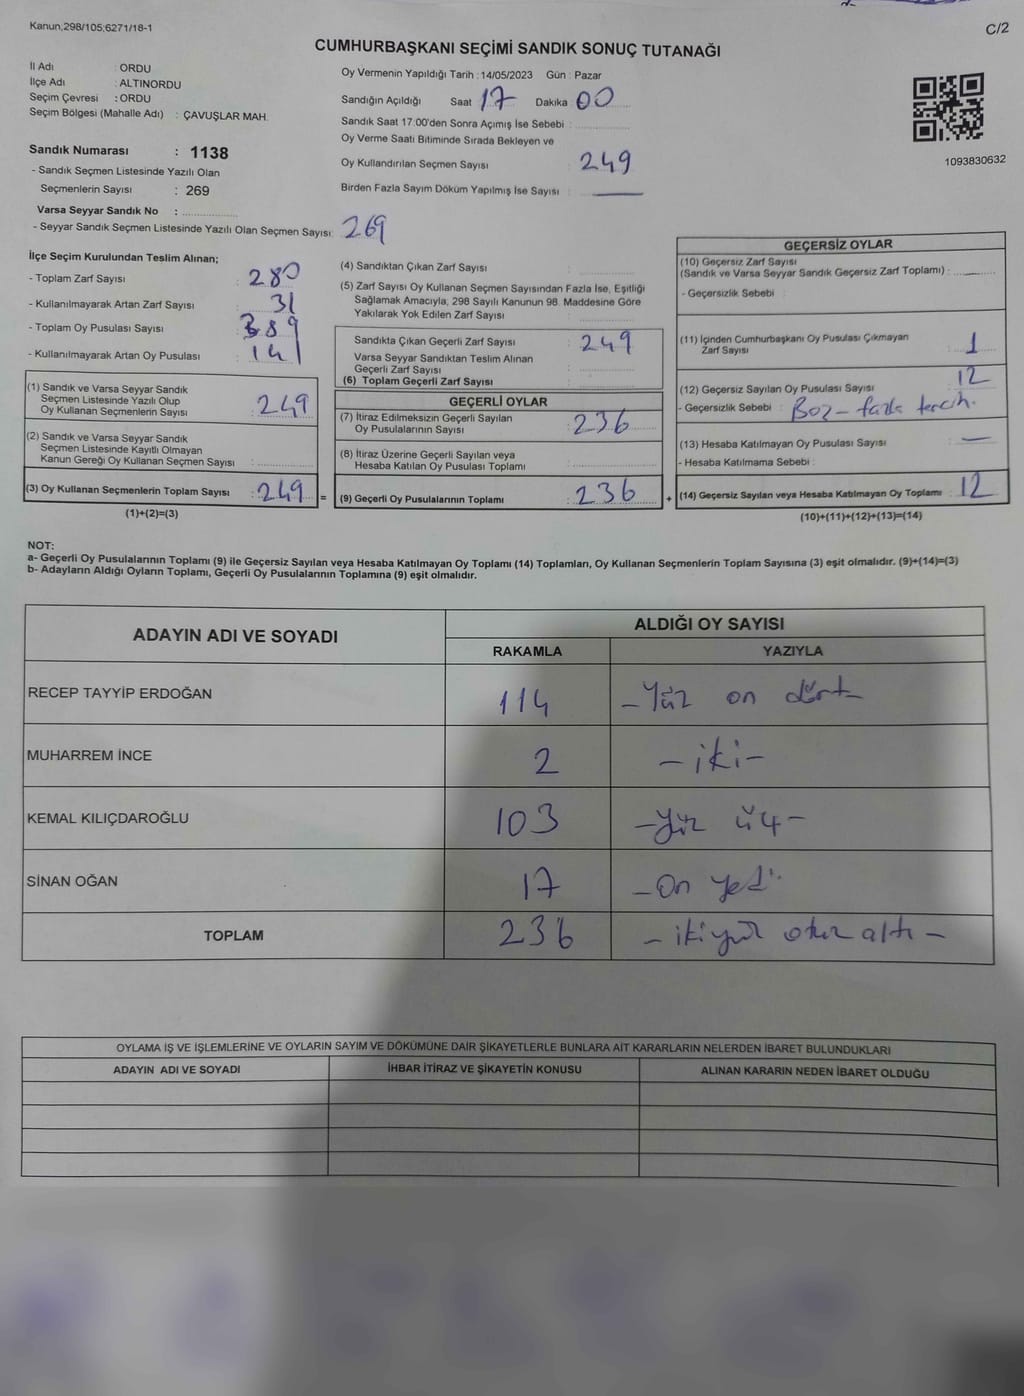 Kanun;298/105;6271/18-1
C/2
CUMHURBAŞKANI SEÇİMİ SANDIK SONUÇ TUTANAĞI
İl Adı : ORDU
İlçe Adı : ALTINORDU
Seçim Çevresi : ORDU
Seçim Bölgesi (Mahalle Adı) : ÇAVUŞLAR MAH.
Sandık Numarası : 1138
- Sandık Seçmen Listesinde Yazılı Olan
Seçmenlerin Sayısı : 269
Varsa Seyyar Sandık No :
- Seyyar Sandık Seçmen Listesinde Yazılı Olan Seçmen Sayısı: 269
Oy Vermenin Yapıldığı Tarih : 14/05/2023 Gün : Pazar
Sandığın Açıldığı Saat 17 Dakika 00
Sandık Saat 17:00'den Sonra Açımış İse Sebebi :
Oy Verme Saati Bitiminde Sırada Bekleyen ve
Oy Kullandırılan Seçmen Sayısı : 249
Birden Fazla Sayım Döküm Yapılmış İse Sayısı : —
1093830632
İlçe Seçim Kurulundan Teslim Alınan;
- Toplam Zarf Sayısı : 280
- Kullanılmayarak Artan Zarf Sayısı : 31
- Toplam Oy Pusulası Sayısı : 389
- Kullanılmayarak Artan Oy Pusulası : 141
(1) Sandık ve Varsa Seyyar Sandık
Seçmen Listesinde Yazılı Olup
Oy Kullanan Seçmenlerin Sayısı : 249
(2) Sandık ve Varsa Seyyar Sandık
Seçmen Listesinde Kayıtlı Olmayan
Kanun Gereği Oy Kullanan Seçmen Sayısı :
(3) Oy Kullanan Seçmenlerin Toplam Sayısı : 249 =
(1)+(2)=(3)
(4) Sandıktan Çıkan Zarf Sayısı :
(5) Zarf Sayısı Oy Kullanan Seçmen Sayısından Fazla İse, Eşitliği
Sağlamak Amacıyla, 298 Sayılı Kanunun 98. Maddesine Göre
Yakılarak Yok Edilen Zarf Sayısı :
Sandıkta Çıkan Geçerli Zarf Sayısı : 249
Varsa Seyyar Sandıktan Teslim Alınan
Geçerli Zarf Sayısı :
(6) Toplam Geçerli Zarf Sayısı :
GEÇERLİ OYLAR
(7) İtiraz Edilmeksizin Geçerli Sayılan
Oy Pusulalarının Sayısı : 236
(8) İtiraz Üzerine Geçerli Sayılan veya
Hesaba Katılan Oy Pusulası Toplamı :
(9) Geçerli Oy Pusulalarının Toplamı : 236 +
GEÇERSİZ OYLAR
(10) Geçersiz Zarf Sayısı
(Sandık ve Varsa Seyyar Sandık Geçersiz Zarf Toplamı) :
- Geçersizlik Sebebi :
(11) İçinden Cumhurbaşkanı Oy Pusulası Çıkmayan
Zarf Sayısı : 1
(12) Geçersiz Sayılan Oy Pusulası Sayısı : 12
- Geçersizlik Sebebi : Boz - fazla tercih.
(13) Hesaba Katılmayan Oy Pusulası Sayısı : —
- Hesaba Katılmama Sebebi :
(14) Geçersiz Sayılan veya Hesaba Katılmayan Oy Toplamı : 12
(10)+(11)+(12)+(13)=(14)
NOT:
a- Geçerli Oy Pusulalarının Toplamı (9) ile Geçersiz Sayılan veya Hesaba Katılmayan Oy Toplamı (14) Toplamları, Oy Kullanan Seçmenlerin Toplam Sayısına (3) eşit olmalıdır. (9)+(14)=(3)
b- Adayların Aldığı Oyların Toplamı, Geçerli Oy Pusulalarının Toplamına (9) eşit olmalıdır.
ADAYIN ADI VE SOYADI ALDIĞI OY SAYISI
RAKAMLA YAZIYLA
RECEP TAYYİP ERDOĞAN 114 - Yüz on dört -
MUHARREM İNCE 2 - iki -
KEMAL KILIÇDAROĞLU 103 - Yüz üç -
SİNAN OĞAN 17 - On yedi
TOPLAM 236 - ikiyüz otuz altı -
OYLAMA İŞ VE İŞLEMLERİNE VE OYLARIN SAYIM VE DÖKÜMÜNE DAİR ŞİKAYETLERLE BUNLARA AİT KARARLARIN NELERDEN İBARET BULUNDUKLARI
ADAYIN ADI VE SOYADI İHBAR İTİRAZ VE ŞİKAYETİN KONUSU ALINAN KARARIN NEDEN İBARET OLDUĞU